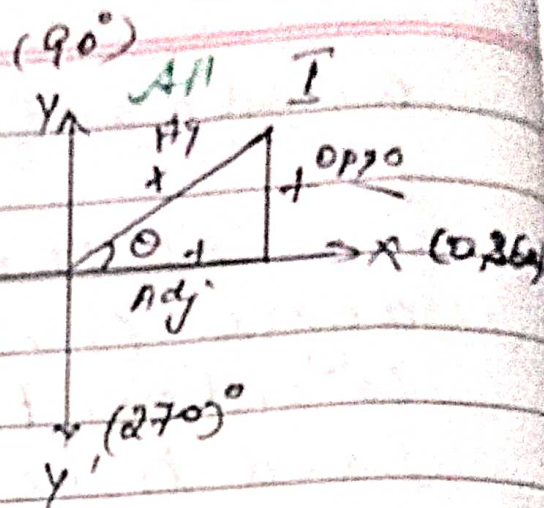 (90°)
All I
Y
Hy
+ + Oppo
θ + X (0,360)
Adj
(270)°
Y'